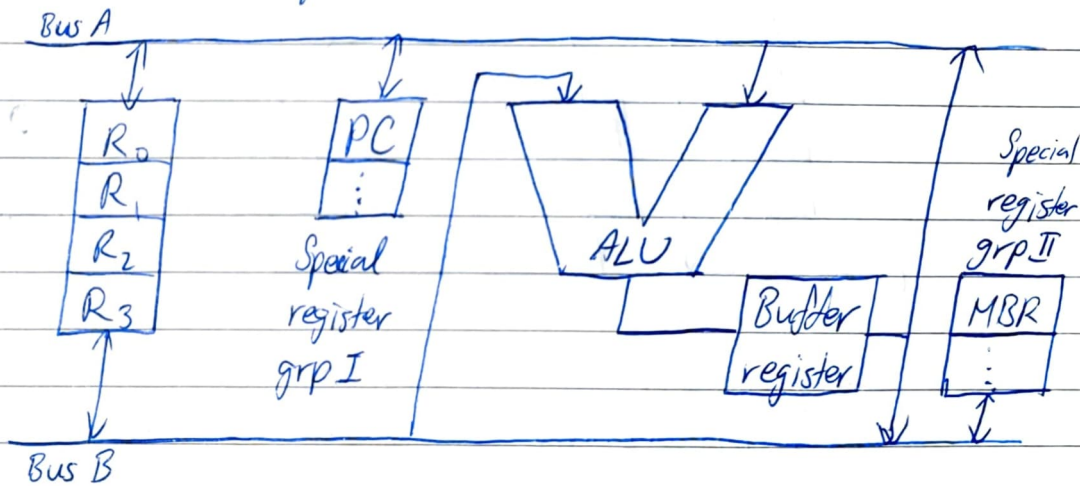 Bus A
R0
R1
R2
R3
PC
⋮
Special
register
grp I
ALU
Buffer
register
Special
register
grp II
MBR
⋮
Bus B